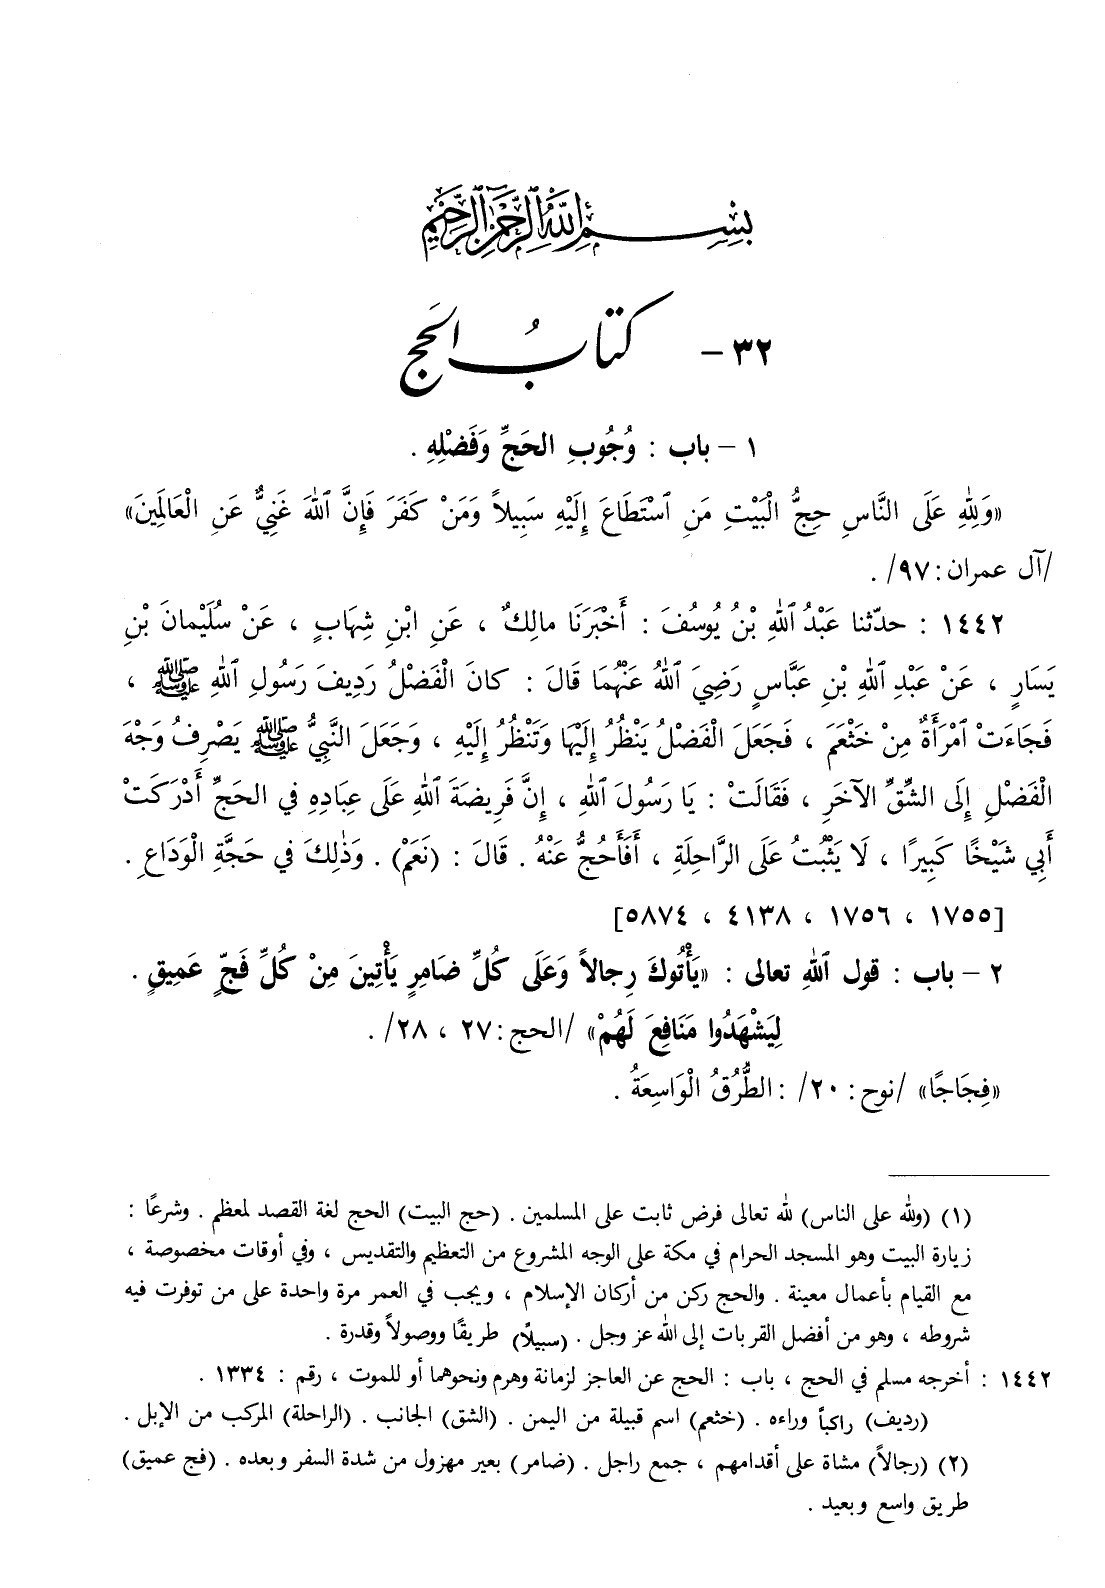 بِسْمِ اللهِ الرَّحْمٰنِ الرَّحِيمِ
٣٢ - كتابُ الحَج
١ - باب : وُجُوبِ الحَجِّ وَفَضْلِهِ .
«وَلِلّٰهِ عَلَى النَّاسِ حِجُّ الْبَيْتِ مَنِ ٱسْتَطَاعَ إِلَيْهِ سَبِيلاً وَمَنْ كَفَرَ فَإِنَّ ٱللهَ غَنِيٌّ عَنِ الْعَالَمِينَ»
/آل عمران: ٩٧/ .
١٤٤٢ : حدّثنا عَبْدُ ٱللهِ بْنُ يُوسُفَ : أَخْبَرَنَا مالِكٌ ، عَنِ ابْنِ شِهَابٍ ، عَنْ سُلَيْمانَ بْنِ
يَسَارٍ ، عَنْ عَبْدِ ٱللهِ بْنِ عَبَّاسٍ رَضِيَ ٱللهُ عَنْهُمَا قالَ : كانَ الْفَضْلُ رَدِيفَ رَسُولِ ٱللهِ ﷺ ،
فَجَاءَتْ ٱمْرَأَةٌ مِنْ خَثْعَمَ ، فَجَعَلَ الْفَضْلُ يَنْظُرُ إِلَيْهَا وَتَنْظُرُ إِلَيْهِ ، وَجَعَلَ النَّبِيُّ ﷺ يَصْرِفُ وَجْهَ
الْفَضْلِ إِلَى الشِّقِّ الآخَرِ ، فَقَالَتْ : يَا رَسُولَ ٱللهِ ، إِنَّ فَرِيضَةَ ٱللهِ عَلَى عِبَادِهِ في الحَجِّ أَدْرَكَتْ
أَبِي شَيْخًا كَبِيرًا ، لَا يَثْبُتُ عَلَى الرَّاحِلَةِ ، أَفَأَحُجُّ عَنْهُ . قالَ : (نَعَمْ) . وَذٰلِكَ في حَجَّةِ الْوَدَاعِ .
[١٧٥٥ ، ١٧٥٦ ، ٤١٣٨ ، ٥٨٧٤]
٢ - باب : قول ٱللهِ تعالى : «يَأْتُوكَ رِجالاً وَعَلَى كُلِّ ضَامِرٍ يَأْتِينَ مِنْ كُلِّ فَجٍّ عَمِيقٍ .
لِيَشْهَدُوا مَنَافِعَ لَهُمْ» /الحج: ٢٧ ، ٢٨/ .
«فِجَاجًا» /نوح: ٢٠/ : الطُّرُقُ الْوَاسِعَةُ .
(١) (ولله على الناس) لله تعالى فرض ثابت على المسلمين . (حج البيت) الحج لغة القصد لمعظم . وشرعًا :
زيارة البيت وهو المسجد الحرام في مكة على الوجه المشروع من التعظيم والتقديس ، وفي أوقات مخصوصة ،
مع القيام بأعمال معينة . والحج ركن من أركان الإسلام ، ويجب في العمر مرة واحدة على من توفرت فيه
شروطه ، وهو من أفضل القربات إلى الله عز وجل . (سبيلاً) طريقًا ووصولاً وقدرة .
١٤٤٢ : أخرجه مسلم في الحج ، باب : الحج عن العاجز لزمانة وهرم ونحوهما أو للموت ، رقم : ١٣٣٤ .
(رديف) راكباً وراءه . (خثعم) اسم قبيلة من اليمن . (الشق) الجانب . (الراحلة) المركب من الإبل .
(٢) (رجالاً) مشاة على أقدامهم ، جمع راجل . (ضامر) بعير مهزول من شدة السفر وبعده . (فج عميق)
طريق واسع وبعيد .